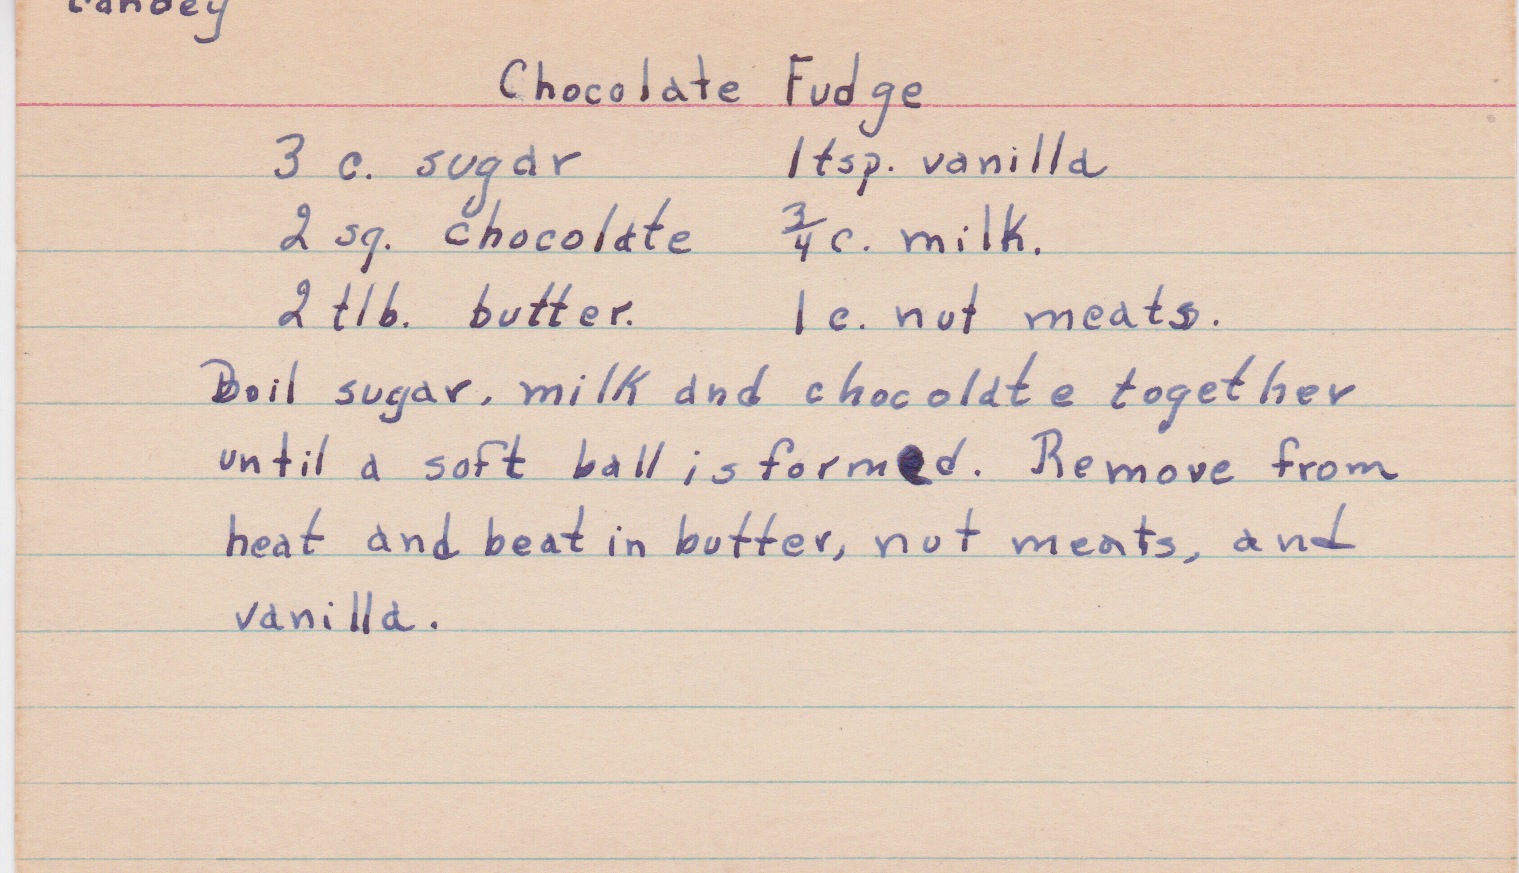 Candey
Chocolate Fudge
3 c. sugar 1 tsp. vanilla
2 sq. chocolate 3/4 c. milk.
2 tlb. butter. 1 c. nut meats.
Boil sugar, milk and chocolate together
until a soft ball is formed. Remove from
heat and beat in butter, nut meats, and
vanilla.